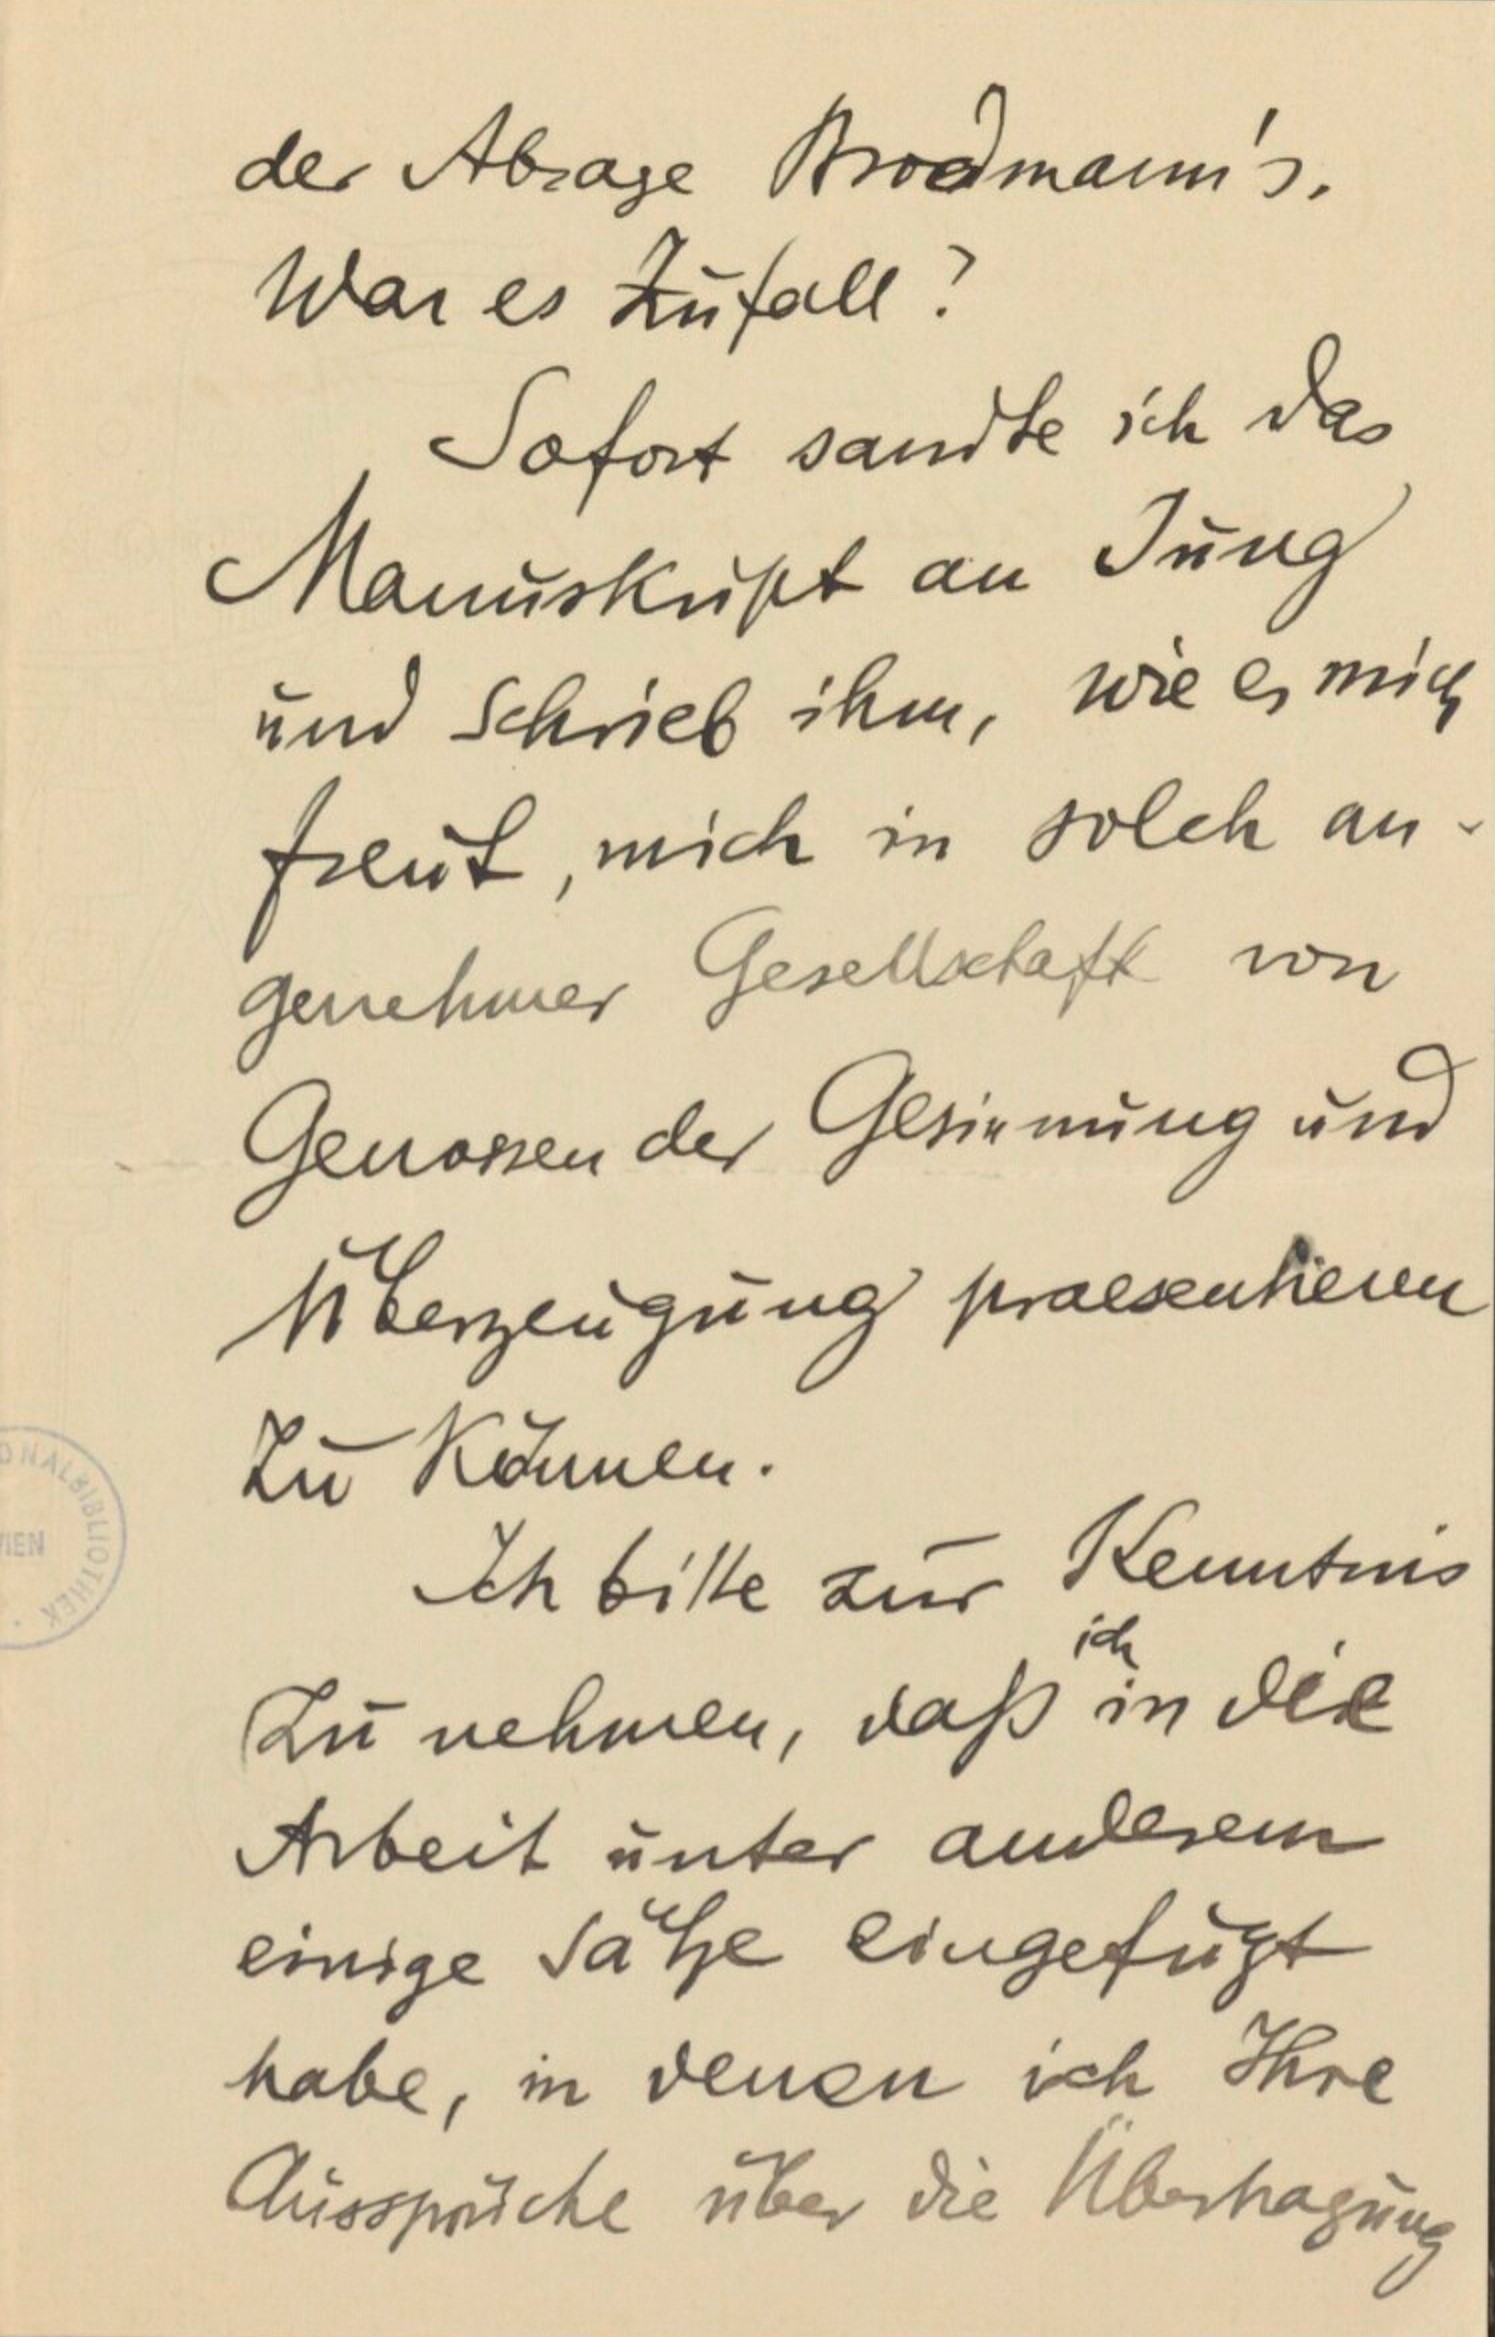 der Absage Brodmann's.
War es Zufall?
Sofort sandte ich das
Manuskript an Jung
und schrieb ihm, wie es mich
freut, mich in solch an-
genehmer Gesellschaft von
Genossen der Gesinnung und
Überzeugung praesentieren
zu können.
Ich bitte zur Kenntnis
ich
zu nehmen, daß in die
Arbeit unter anderem
einige Sätze eingefügt
habe, in denen ich Ihre
Aussprüche über die Übertragung
ONALBIBLIOTHEK
WIEN